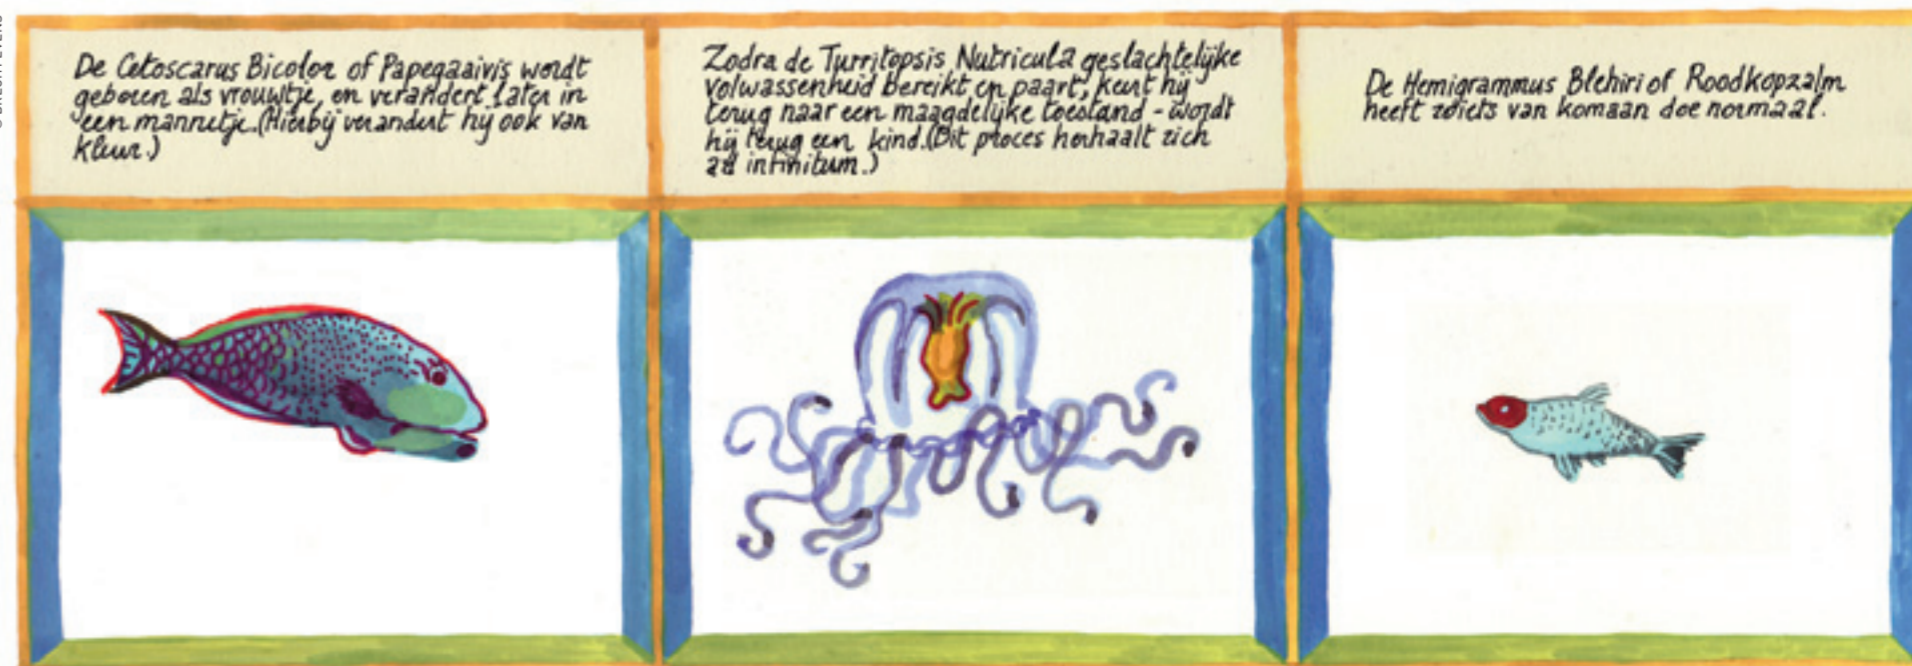 De Cetoscarus Bicolor of Papegaaivis wordt
geboren als vrouwtje, en verandert later in
een mannetje. (Hierbij verandert hij ook van
kleur.)
Zodra de Turritopsis Nutricula geslachtelijke
volwassenheid bereikt en paart, keert hij
terug naar een maagdelijke toestand - wordt
hij terug een kind. (Dit proces herhaalt zich
ad infinitum.)
De Hemigrammus Blehiri of Roodkopzalm
heeft zoiets van komaan doe normaal.